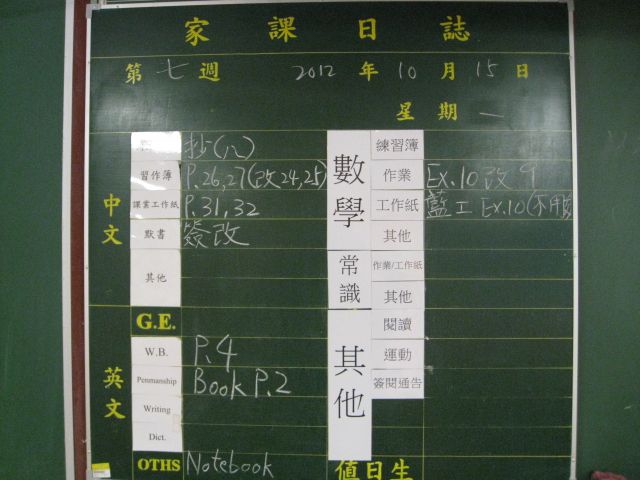 家課日誌
第七週 2012年10月15日
星期一
中文
抄(八)
習作簿 P.26,27(改24,25)
課業工作紙 P.31,32
默書 簽改
其他
數學
練習簿
作業 Ex.10改9
工作紙 藍工 Ex.10(不用
其他
常識
作業/工作紙
其他
英文
G.E.
W.B. P.4
Penmanship Book P.2
Writing
Dict.
OTHS Notebook
其他
閱讀
運動
簽閱通告
值日生